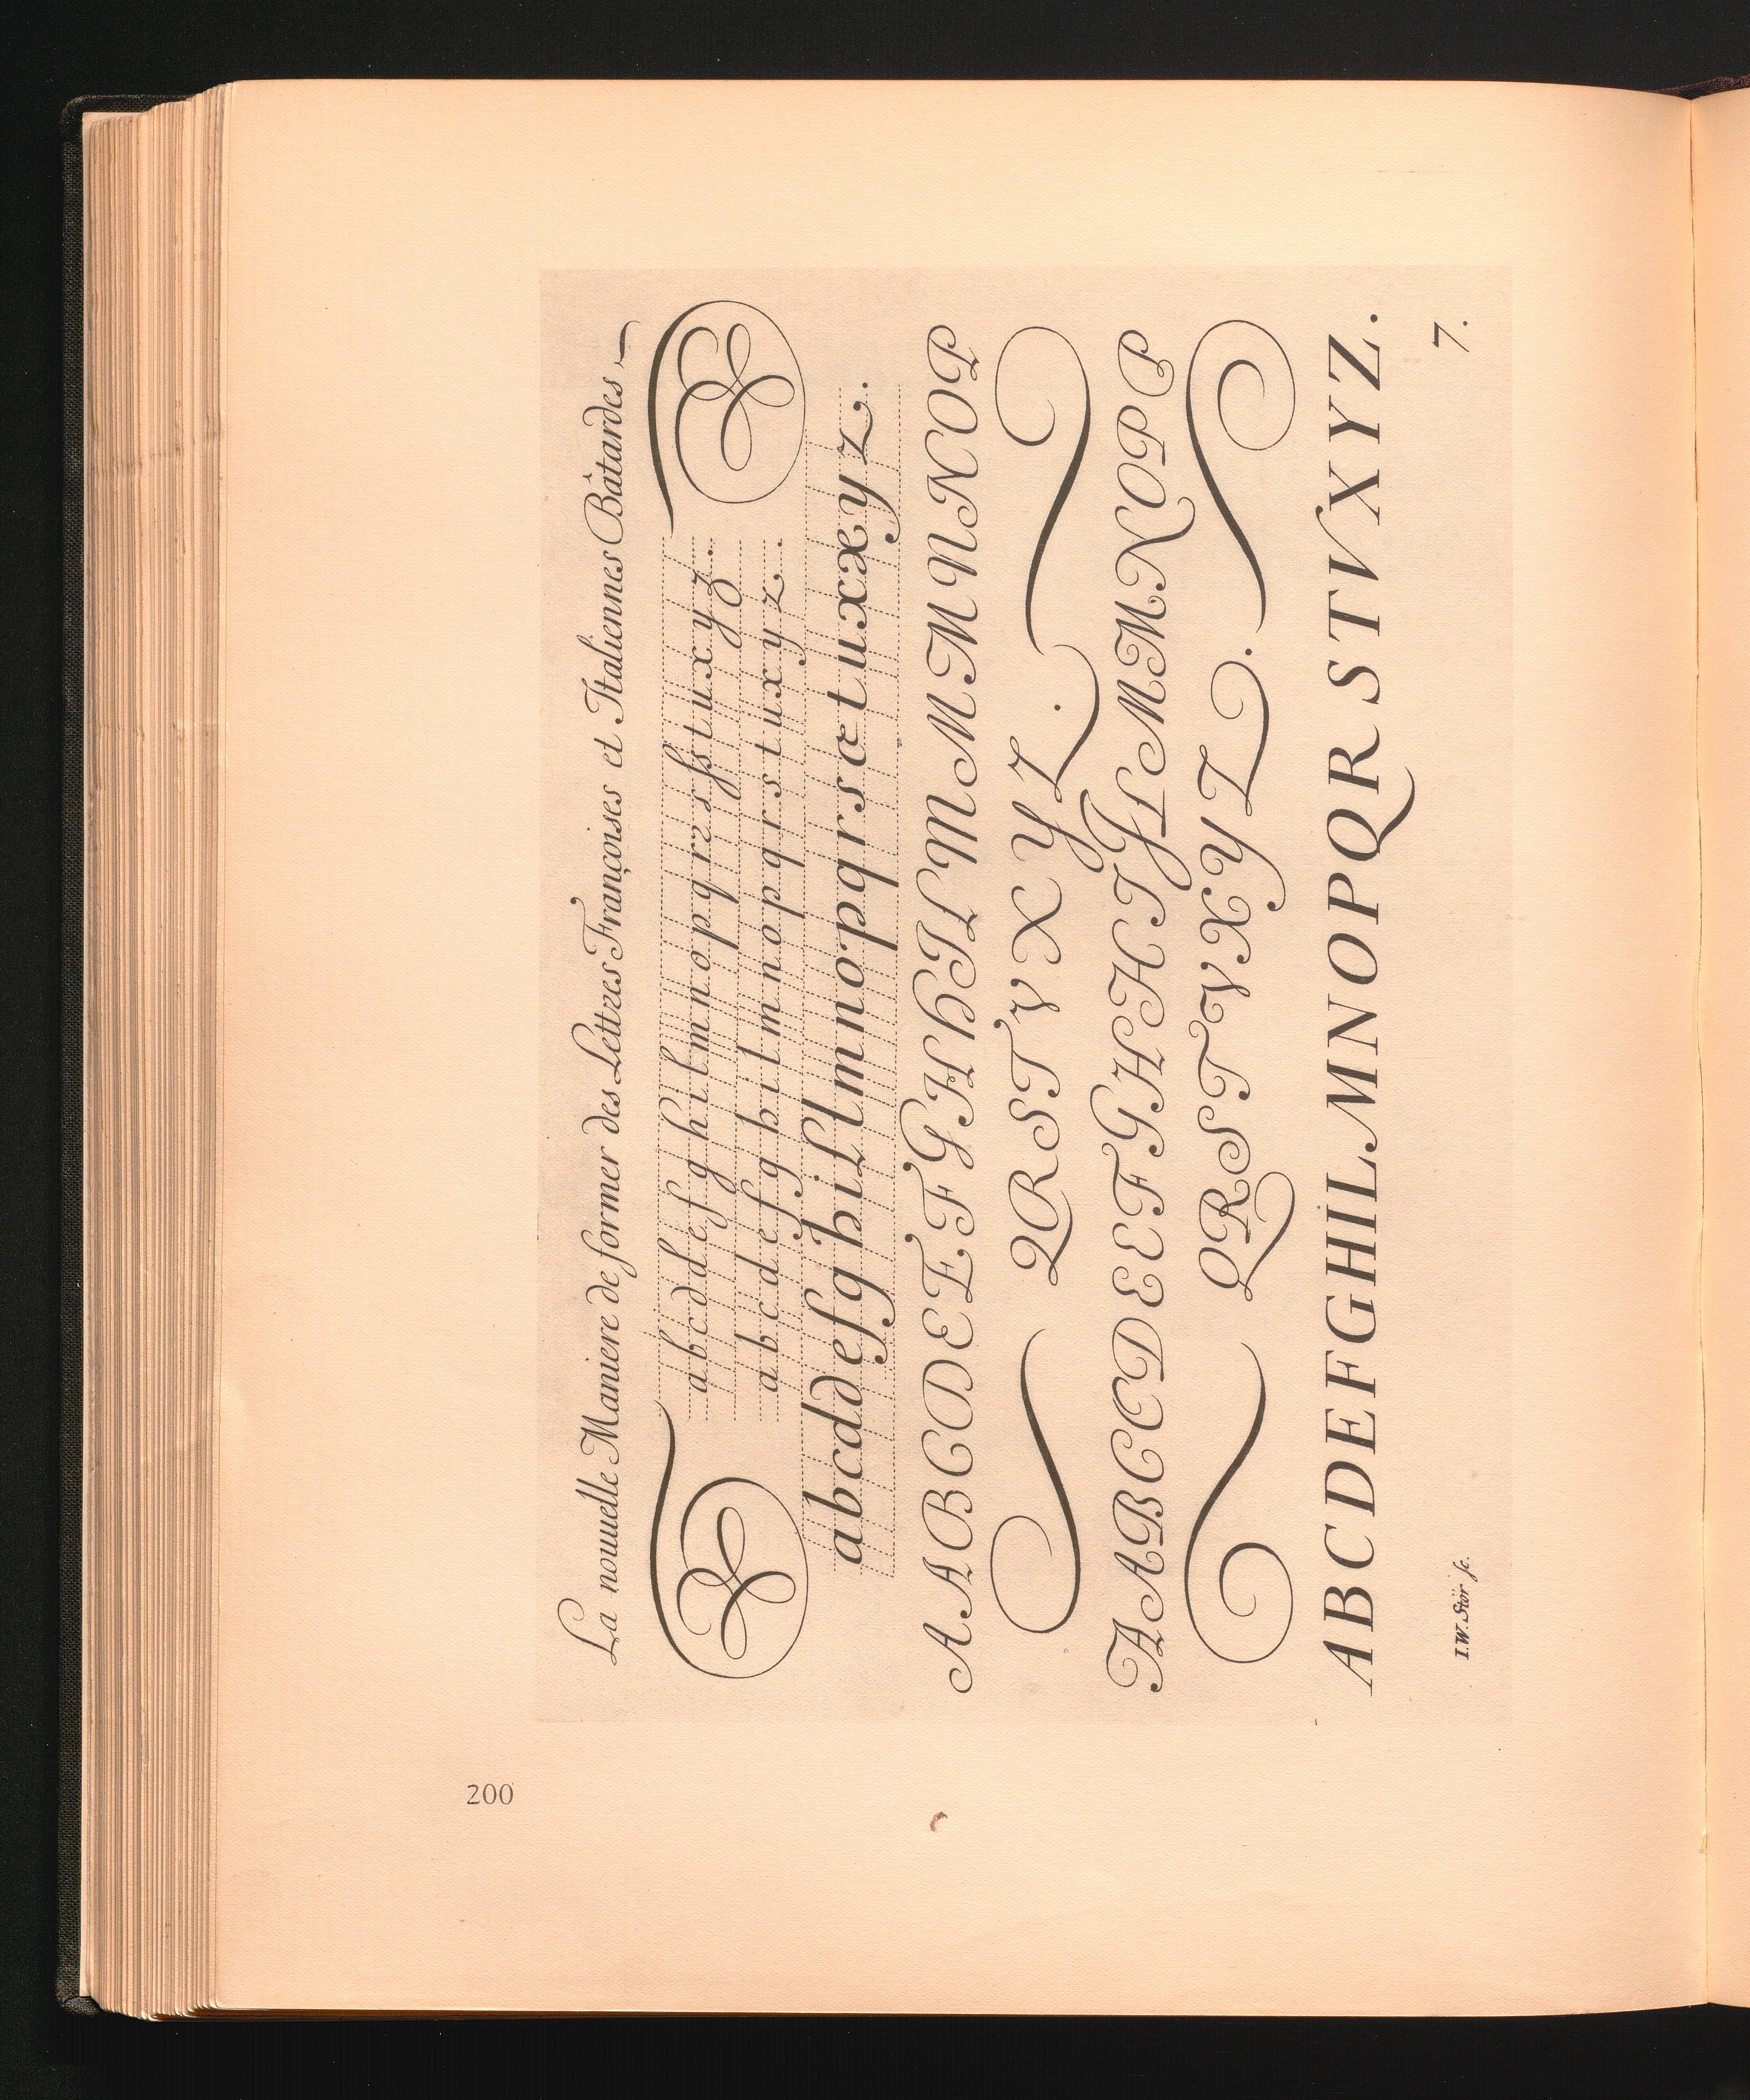 La nouuelle Maniere de former des Lettres Françoises et Italiennes Bâtardes
a b c d d e f g h i l m n o p q r z s ſ s t u x y z.
a b c d e f g h i l m n o p q r s t u x y z.
a b c d d e f g h i ſ l m n o p q r s æ t u x æ y z.
A A B C D E E F G H H I L M M M N N O P
Q R S T V X Y Z.
A A B C C D E E F G H H I J L M M N O P P
Q R S T V X Y Z.
A B C D E F G H I L M N O P Q R S T V X Y Z.
I.W. Stör sc.
7.
200